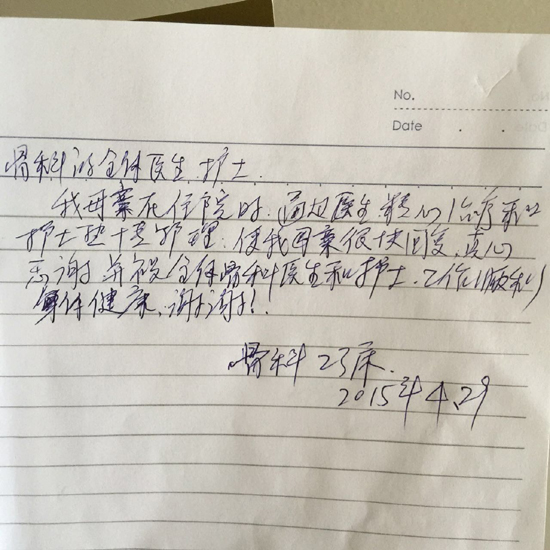 No.
Date . .
骨科的全体医生.护士.
我母亲在住院时.通过医生精心治疗和
护士热情护理.使我母亲很快回复,真心
感谢.并祝全体骨科医生和护士.工作顺利
身体健康.谢谢!
骨科23床.
2015年4.29